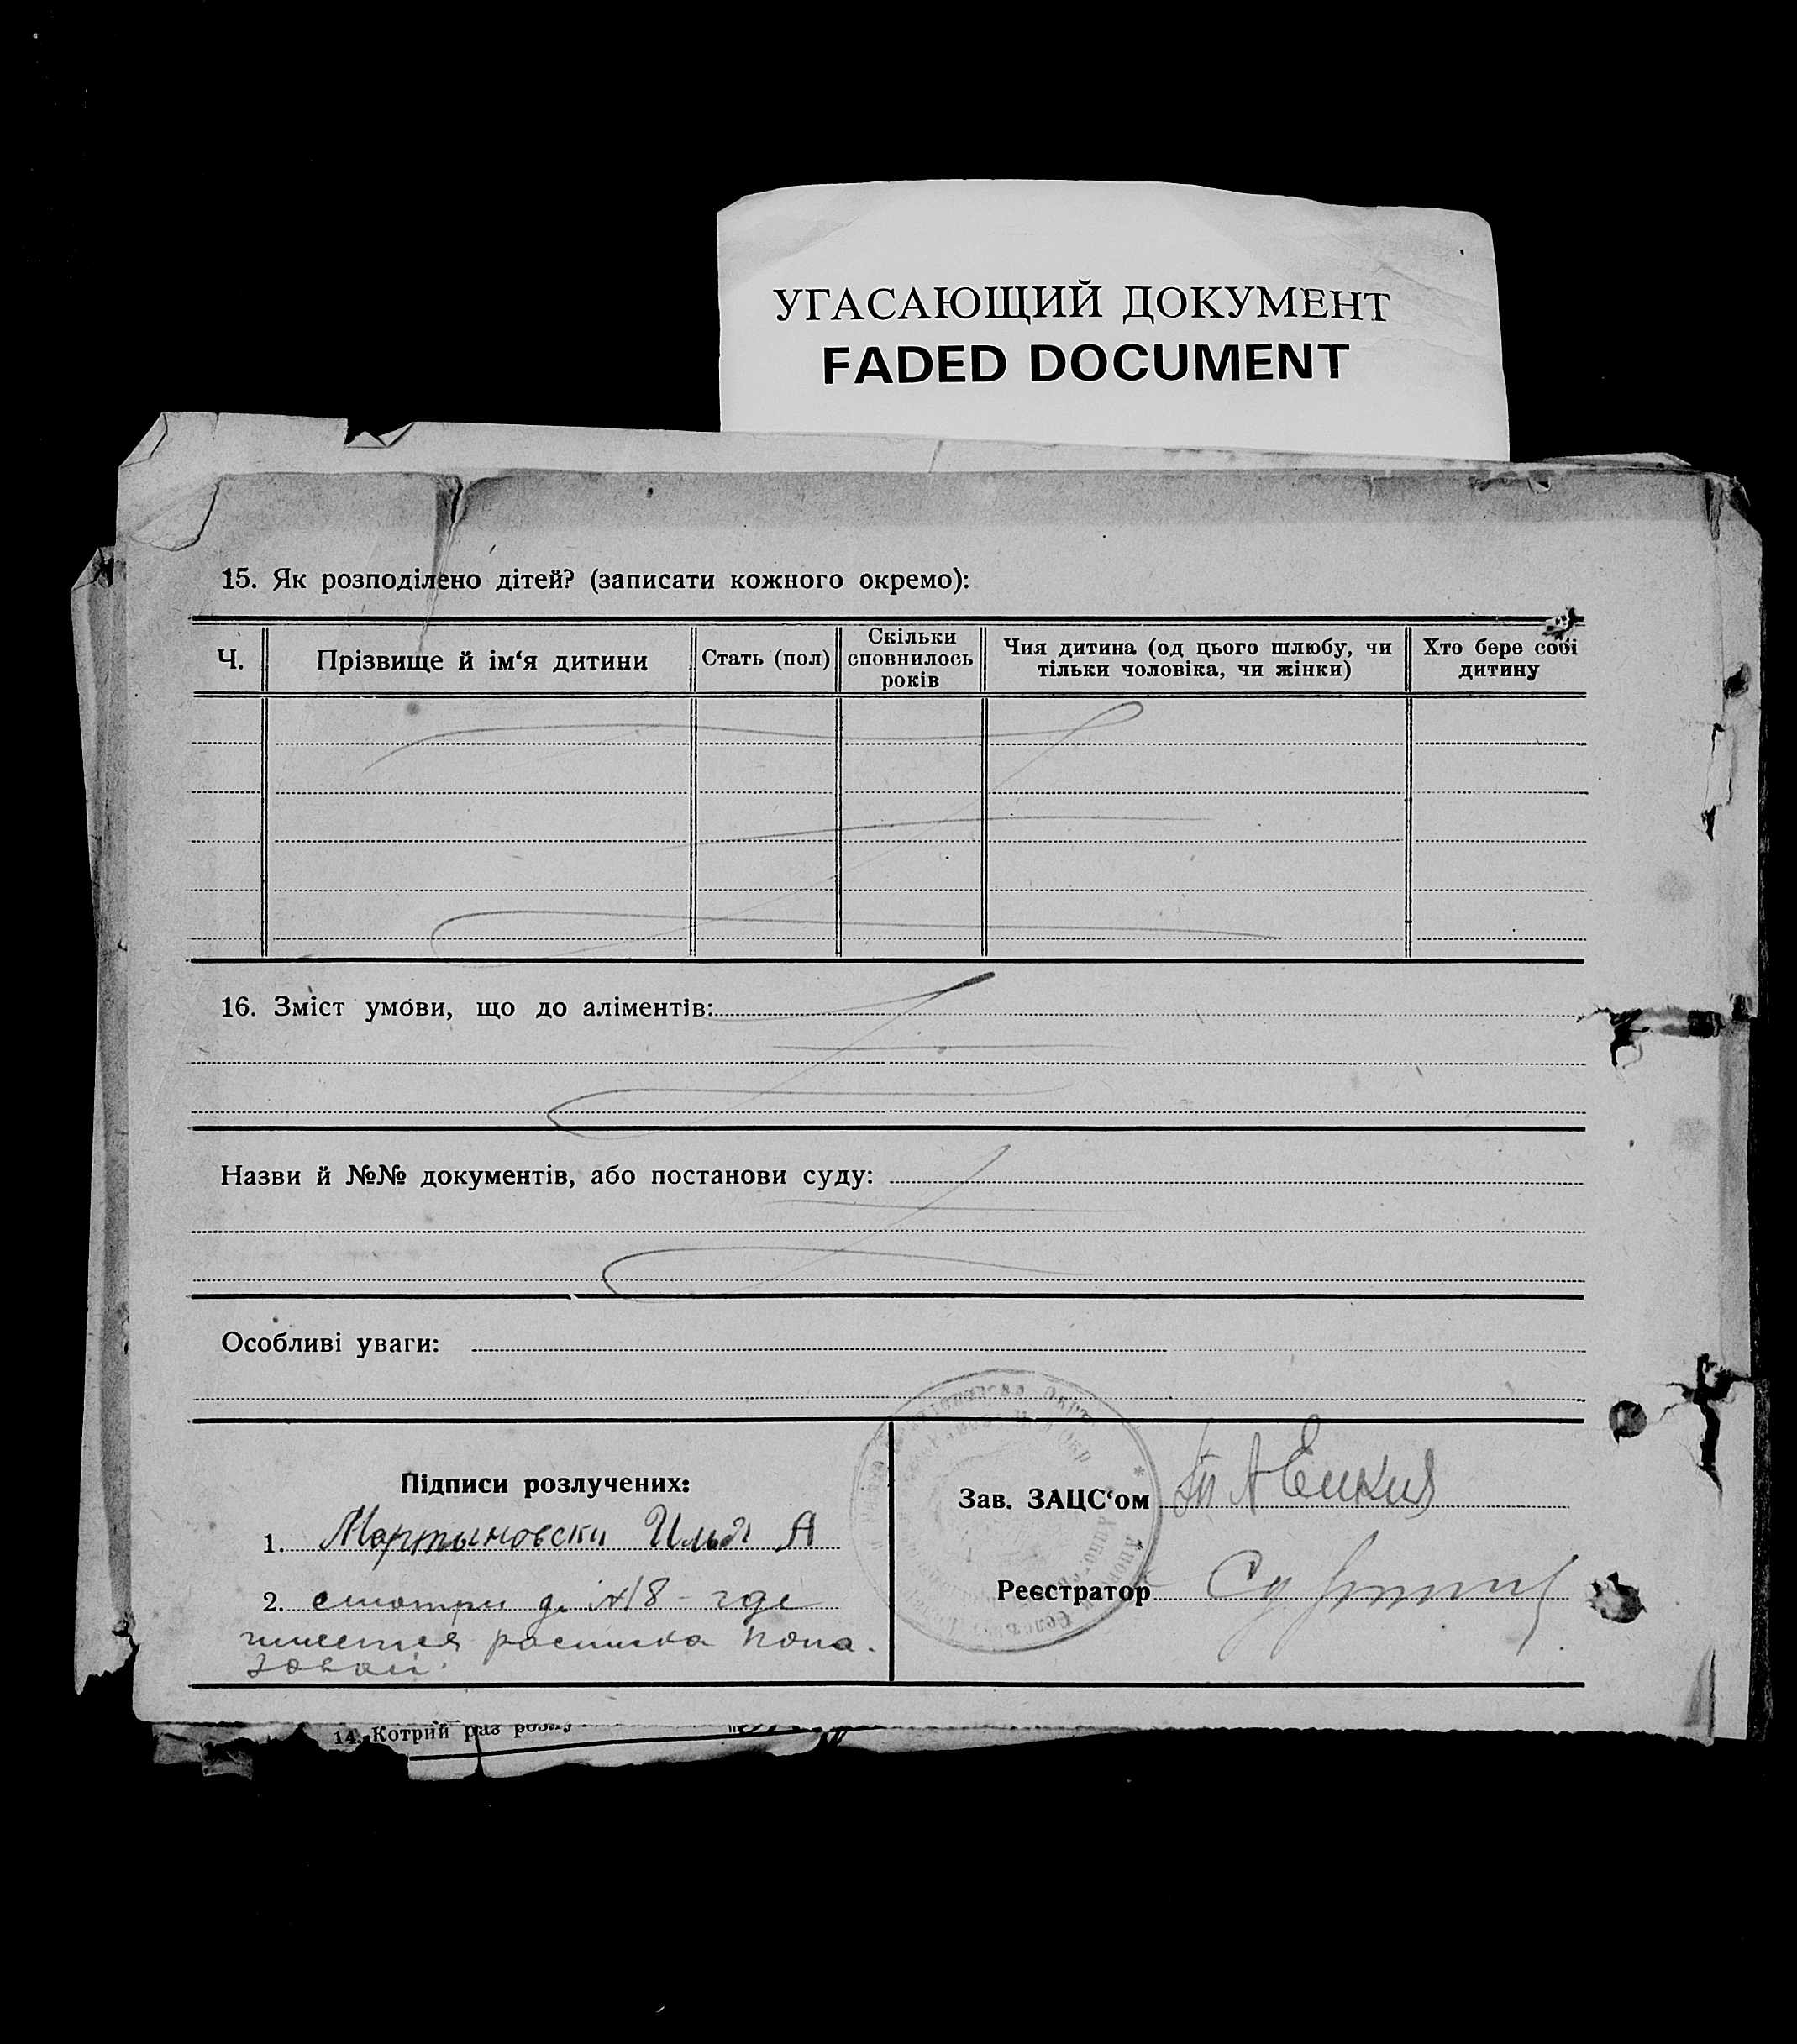 УГАСАЮЩИЙ ДОКУМЕНТ
FADED DOCUMENT
15. Як розподілено дітей? (записати кожного окремо):
Ч.
Прізвище й ім‘я дитини
Стать (пол)
Скільки
сповнилось
років
Чия дитина (од цього шлюбу, чи
тільки чоловіка, чи жінки)
Хто бере собі
дитину
16. Зміст умови, що до аліментів:
Назви й №№ документів, або постанови суду:
Особливі уваги:
Підписи розлучених:
1. Мартыновски Илья А
2. смотри д. №18 - где
имеется росписка Попа-
зовой.
Зав. ЗАЦС‘ом
Реєстратор
14. Котрий раз розлу